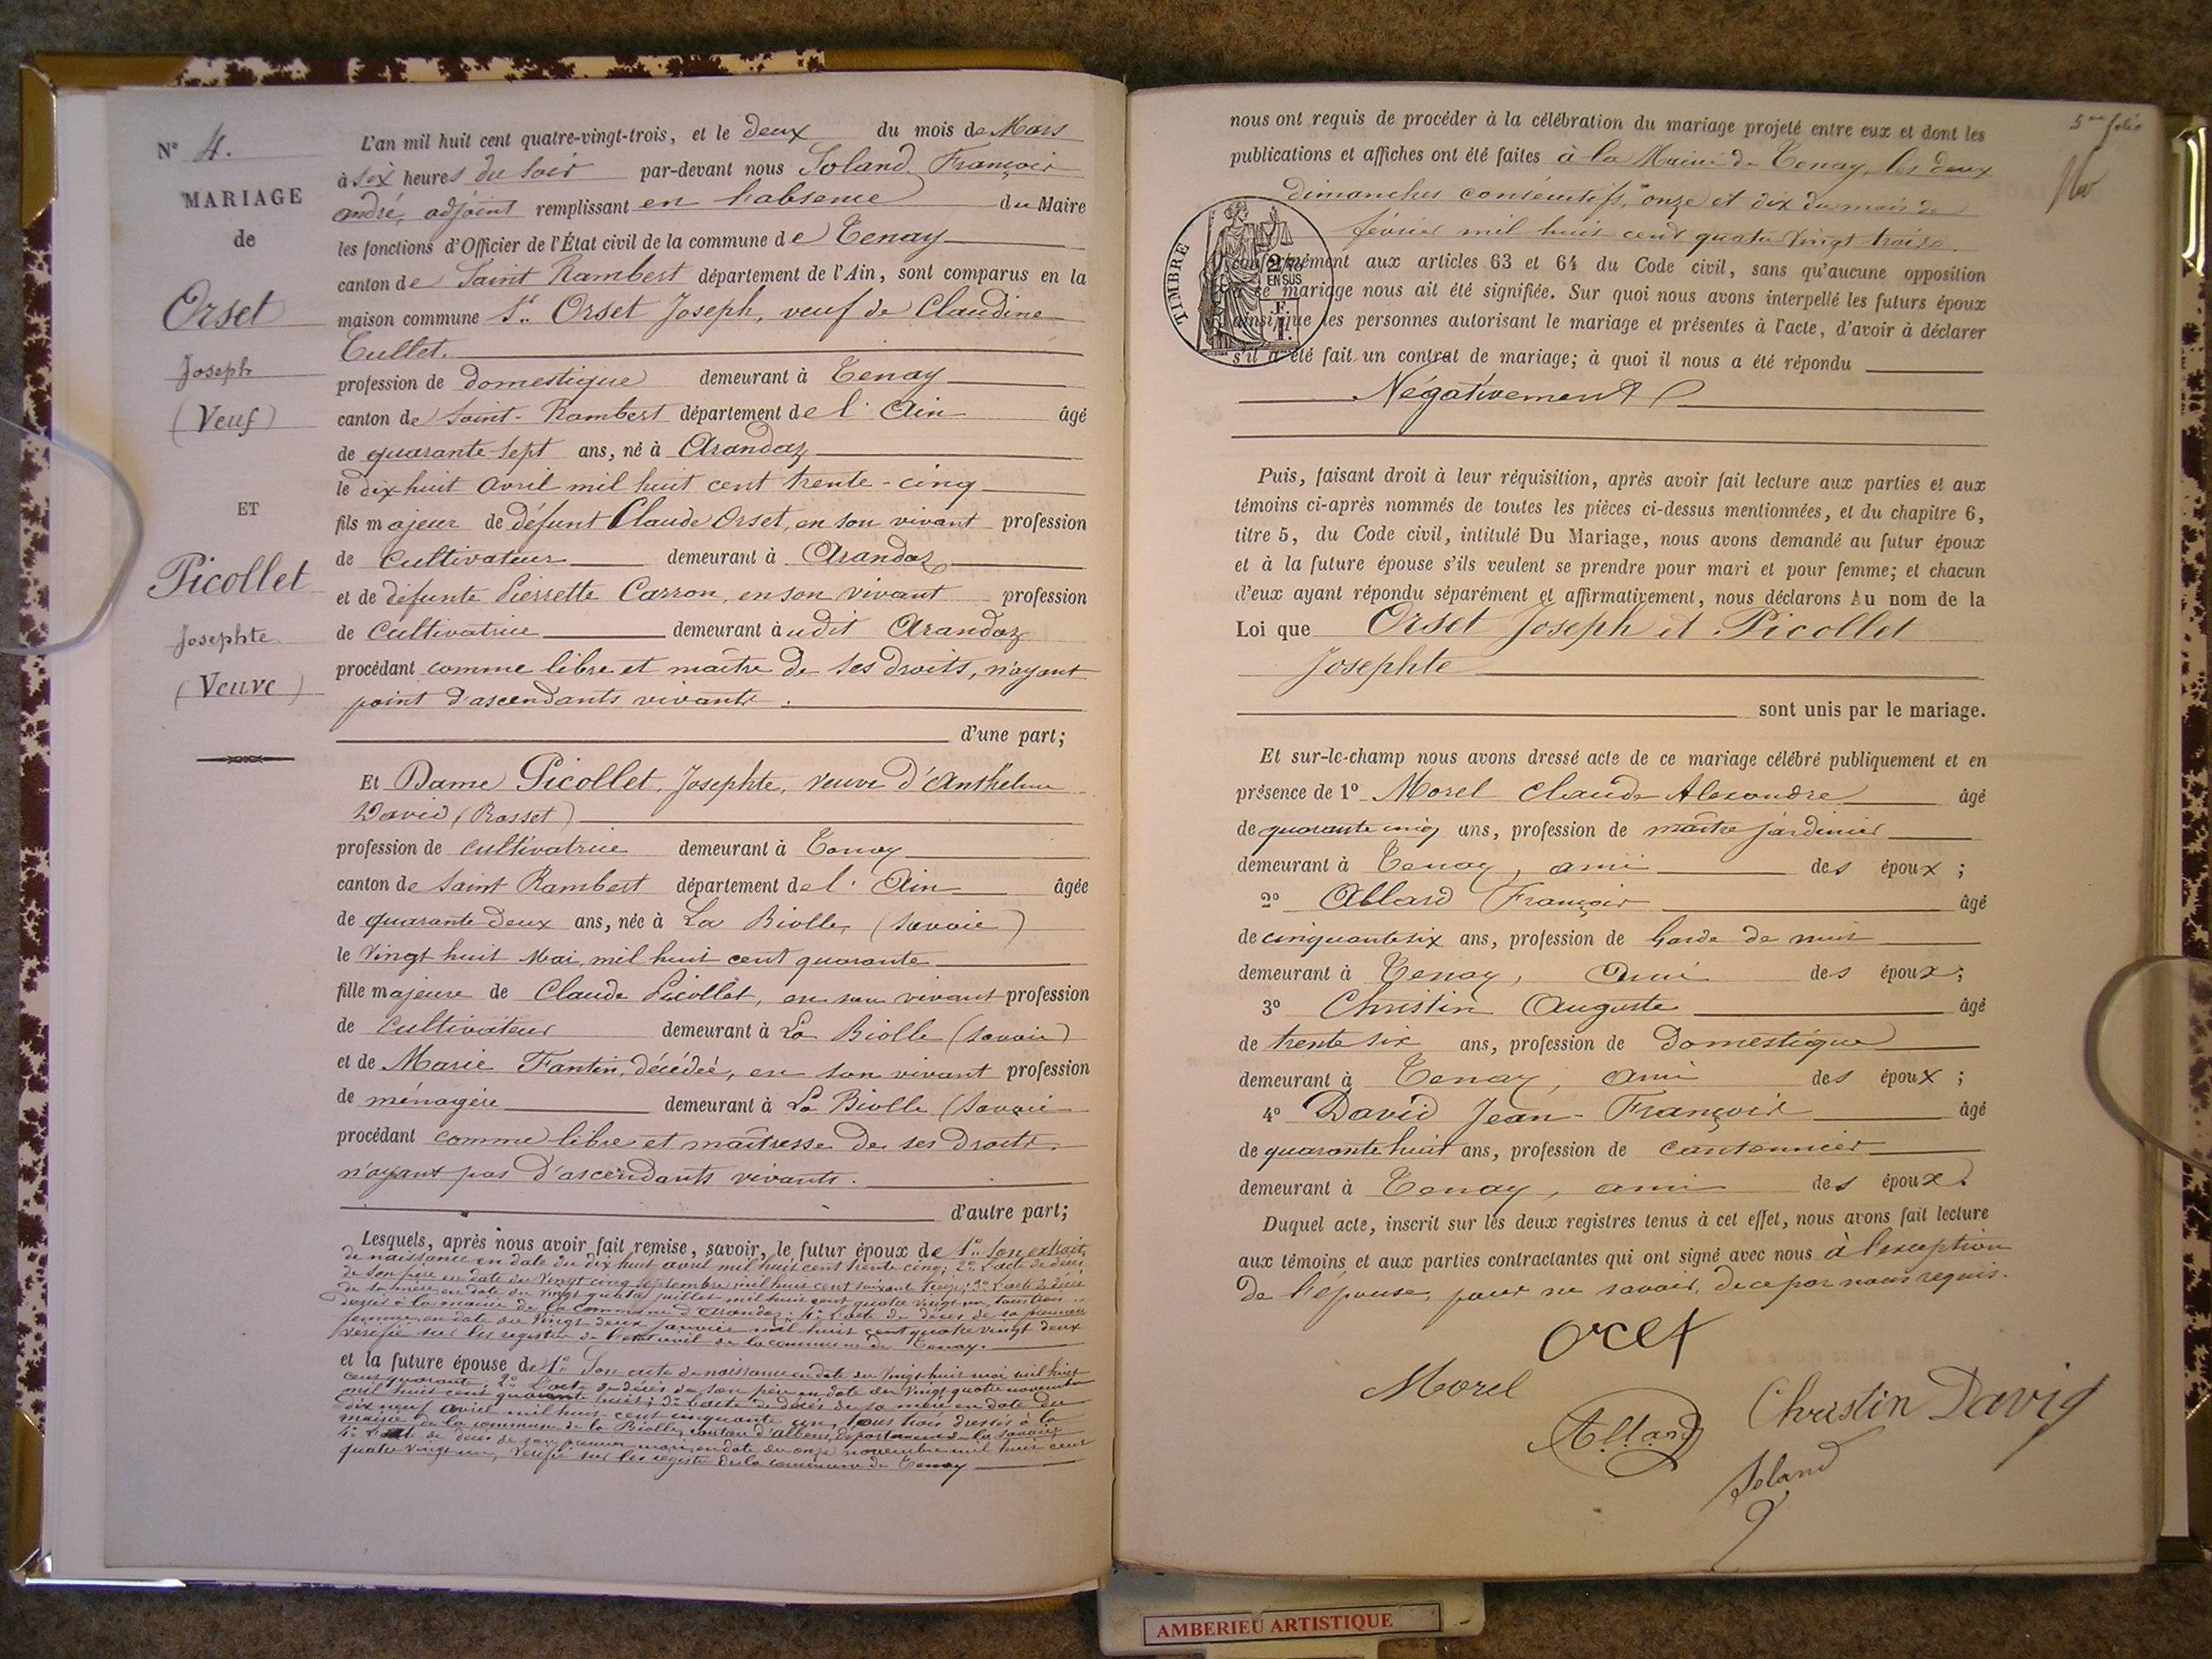 N° 4.
MARIAGE
de
Orset
Joseph
(Veuf)
ET
Picollet
Josephte
(Veuve)
L'an mil huit cent quatre-vingt-trois, et le deux du mois de Mars
à six heures du soir par-devant nous Soland François
andré, adjoint remplissant en l'absence du Maire
les fonctions d'Officier de l'État civil de la commune de Tenay
canton de Saint Rambert département de l'Ain, sont comparus en la
maison commune Sr. Orset Joseph, veuf de Claudine
Tullet.
profession de domestique demeurant à Tenay
canton de Saint-Rambert département de l'Ain âgé
de quarante-sept ans, né à Arandaz
le dix-huit avril mil huit cent trente-cinq
fils majeur de défunt Claude Orset, en son vivant profession
de cultivateur demeurant à Arandaz
et de défunte Pierrette Carron, en son vivant profession
de cultivatrice demeurant à udit Arandaz
procédant comme libre et maître de ses droits, n'ayant
point d'ascendants vivants.
d'une part;
Et Dame Picollet, Josephte, veuve d'Anthelme
David (Rosset)
profession de cultivatrice demeurant à Tenay
canton de Saint Rambert département de l'Ain âgée
de quarante deux ans, née à La Biolle, (Savoie)
le vingt huit Mai, mil huit cent quarante
fille majeure de Claude Picollet, en son vivant profession
de cultivateur demeurant à La Biolle (Savoie)
et de Marie Fantin, décédée, en son vivant profession
de ménagère demeurant à La Biolle (Savoie
procédant comme libre et maîtresse de ses droits,
n'ayant pas d'ascendants vivants.
d'autre part;
Lesquels, après nous avoir fait remise, savoir, le futur époux de 1° Son extrait
de naissance en date du dix huit avril mil huit cent trente cinq; 2° L'acte de décès
de son père en date du vingt cinq septembre mil huit cent soixante ; 3° L'acte de décès
de sa mère en date du vingt juillet mil huit cent quatre vingt un, tous trois
dressés à la mairie de la commune d'Arandaz; 4° L'acte de décès de sa première
femme, en date du vingt deux janvier mil huit cent quatre vingt deux
vérifié sur les registres de l'état civil de la commune de Tenay.
et la future épouse de 1° Son acte de naissance en date du vingt huit mai mil huit
cent quarante; 2° L'acte de décès de son père en date du vingt quatre novembre
mil huit cent quarante huit; 3° L'acte de décès de sa mère en date du
dix neuf avril mil huit cent cinquante un, tous trois dressés à la
mairie de la commune de la Biolle, canton d'Albens, département de la Savoie;
4° L'acte de décès de son premier mari, en date du onze novembre mil huit cent
quatre vingt un, vérifié sur les registres de la commune de Tenay
5me folio
nous ont requis de procéder à la célébration du mariage projeté entre eux et dont les
publications et affiches ont été faites à la Mairie de Tenay, les deux
dimanches consécutifs, onze et dix du mois de
février mil huit cent quatre vingt trois.
conformément aux articles 63 et 64 du Code civil, sans qu'aucune opposition
à ce mariage nous ait été signifiée. Sur quoi nous avons interpellé les futurs époux
ainsi que les personnes autorisant le mariage et présentes à l'acte, d'avoir à déclarer
s'il a été fait un contrat de mariage; à quoi il nous a été répondu
Négativement
TIMBRE
EN SUS
Puis, faisant droit à leur réquisition, après avoir fait lecture aux parties et aux
témoins ci-après nommés de toutes les pièces ci-dessus mentionnées, et du chapitre 6,
titre 5, du Code civil, intitulé Du Mariage, nous avons demandé au futur époux
et à la future épouse s'ils veulent se prendre pour mari et pour femme; et chacun
d'eux ayant répondu séparément et affirmativement, nous déclarons Au nom de la
Loi que Orset Joseph et Picollet
Josephte
sont unis par le mariage.
Et sur-le-champ nous avons dressé acte de ce mariage célébré publiquement et en
présence de 1° Morel Claude Alexandre âgé
de quarante cinq ans, profession de maître jardinier
demeurant à Tenay, ami des époux;
2° Allard François âgé
de cinquante six ans, profession de Garde de nuit
demeurant à Tenay, Ami des époux;
3° Christin Auguste âgé
de trente six ans, profession de Domestique
demeurant à Tenay, ami des époux;
4° David Jean-François âgé
de quarante huit ans, profession de cantonnier
demeurant à Tenay, ami des époux.
Duquel acte, inscrit sur les deux registres tenus à cet effet, nous avons fait lecture
aux témoins et aux parties contractantes qui ont signé avec nous à l'exception
de l'épouse, pour ne savoir, de ce par nous requis.
Orcet
Morel
Allard
Christin David
Soland
AMBERIEU ARTISTIQUE